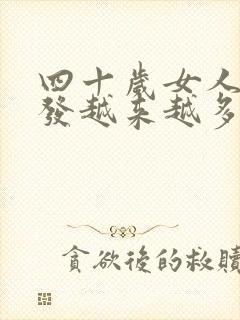 四十歲女人
發越來越多
貪欲後的救贖